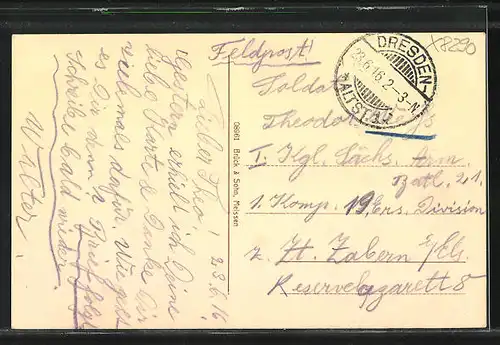 Feldpost!
Soldat
Theodor
I. Kgl. Sächs. Arm.
Batl. 21.
1. Komp. 19. Ers. Division
z. Zt. Zabern i/Els.
Reservelazarett 8
DRESDEN-
23.6.16.2-3-N.
*ALTST.
08861 Brück & Sohn, Meissen
23.6.16
Lieber Theo!
Gestern erhielt ich Deine
liebe Karte & danke Dir
vielmals dafür. Wie geht
es Dir denn? Brief folgt
Schreibe bald wieder.
Walter.